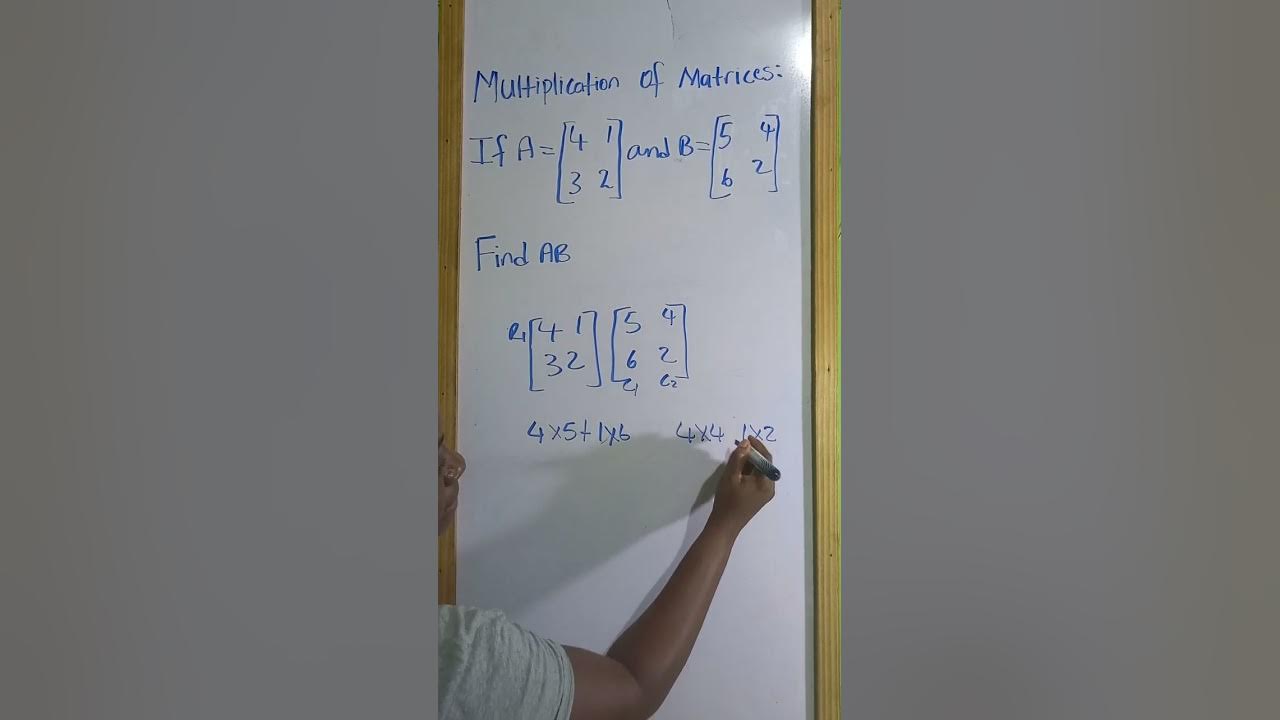 Multiplication of Matrices:
If A = [4 1 and B = [5 4
3 2] 6 2]
Find AB
R1 [4 1 [5 4
3 2] 6 2]
C1 C2
4x5+1x6 4x4 1x2